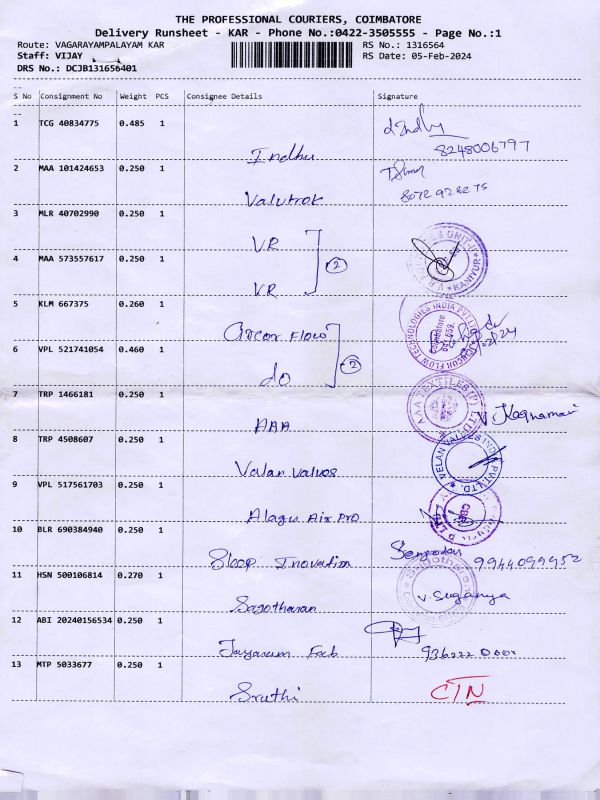 THE PROFESSIONAL COURIERS, COIMBATORE
Delivery Runsheet - KAR - Phone No.:0422-3505555 - Page No.:1
Route: VAGARAYAMPALAYAM KAR RS No.: 1316564
Staff: VIJAY RS Date: 05-Feb-2024
DRS No.: DCJB131656401
S No Consignment No Weight PCS Consignee Details Signature
1 TCG 40834775 0.485 1
Indhu 8248006797
2 MAA 101424653 0.250 1
Valutrok
3 MLR 40702990 0.250 1
VR
4 MAA 573557617 0.250 1 2
VR
5 KLM 667375 0.260 1
Arcor Flow
6 VPL 521741054 0.460 1 2
do
7 TRP 1466181 0.250 1
AAA
8 TRP 4508607 0.250 1
Velan Valves
9 VPL 517561703 0.250 1
Alagu Air Pro
10 BLR 690384940 0.250 1
Sleep Inovation 9944099952
11 HSN 500106814 0.270 1
Sagotharan V. Suganya
12 ABI 20240156534 0.250 1
Jayaram Fab
13 MTP 5033677 0.250 1
Sruthi CTN